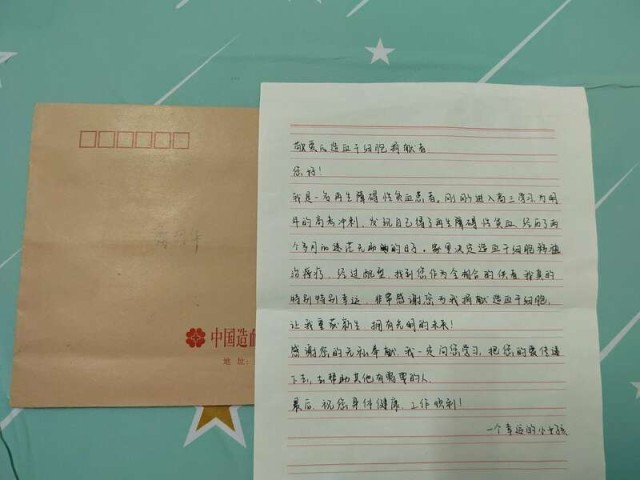 中国造血
地址:
敬爱的造血干细胞捐献者
您好!
我是一名再生障碍性贫血患者。刚刚进入高三学习为明
年的高考冲刺,发现自己得了再生障碍性贫血。经历了两
个多月的迷茫无助的日子。最决定造血干细胞移植
治疗。经过配型,找到您作为全相合的供者。我真的
特别特别幸运。非常感谢您为我捐献造血干细胞,
让我重获新生,拥有光明的未来!
感谢您的无私奉献,我一定向您学习,把您的爱传递
下去,去帮助其他有需要的人。
最后,祝您身体健康,工作顺利!
一个幸运的小女孩